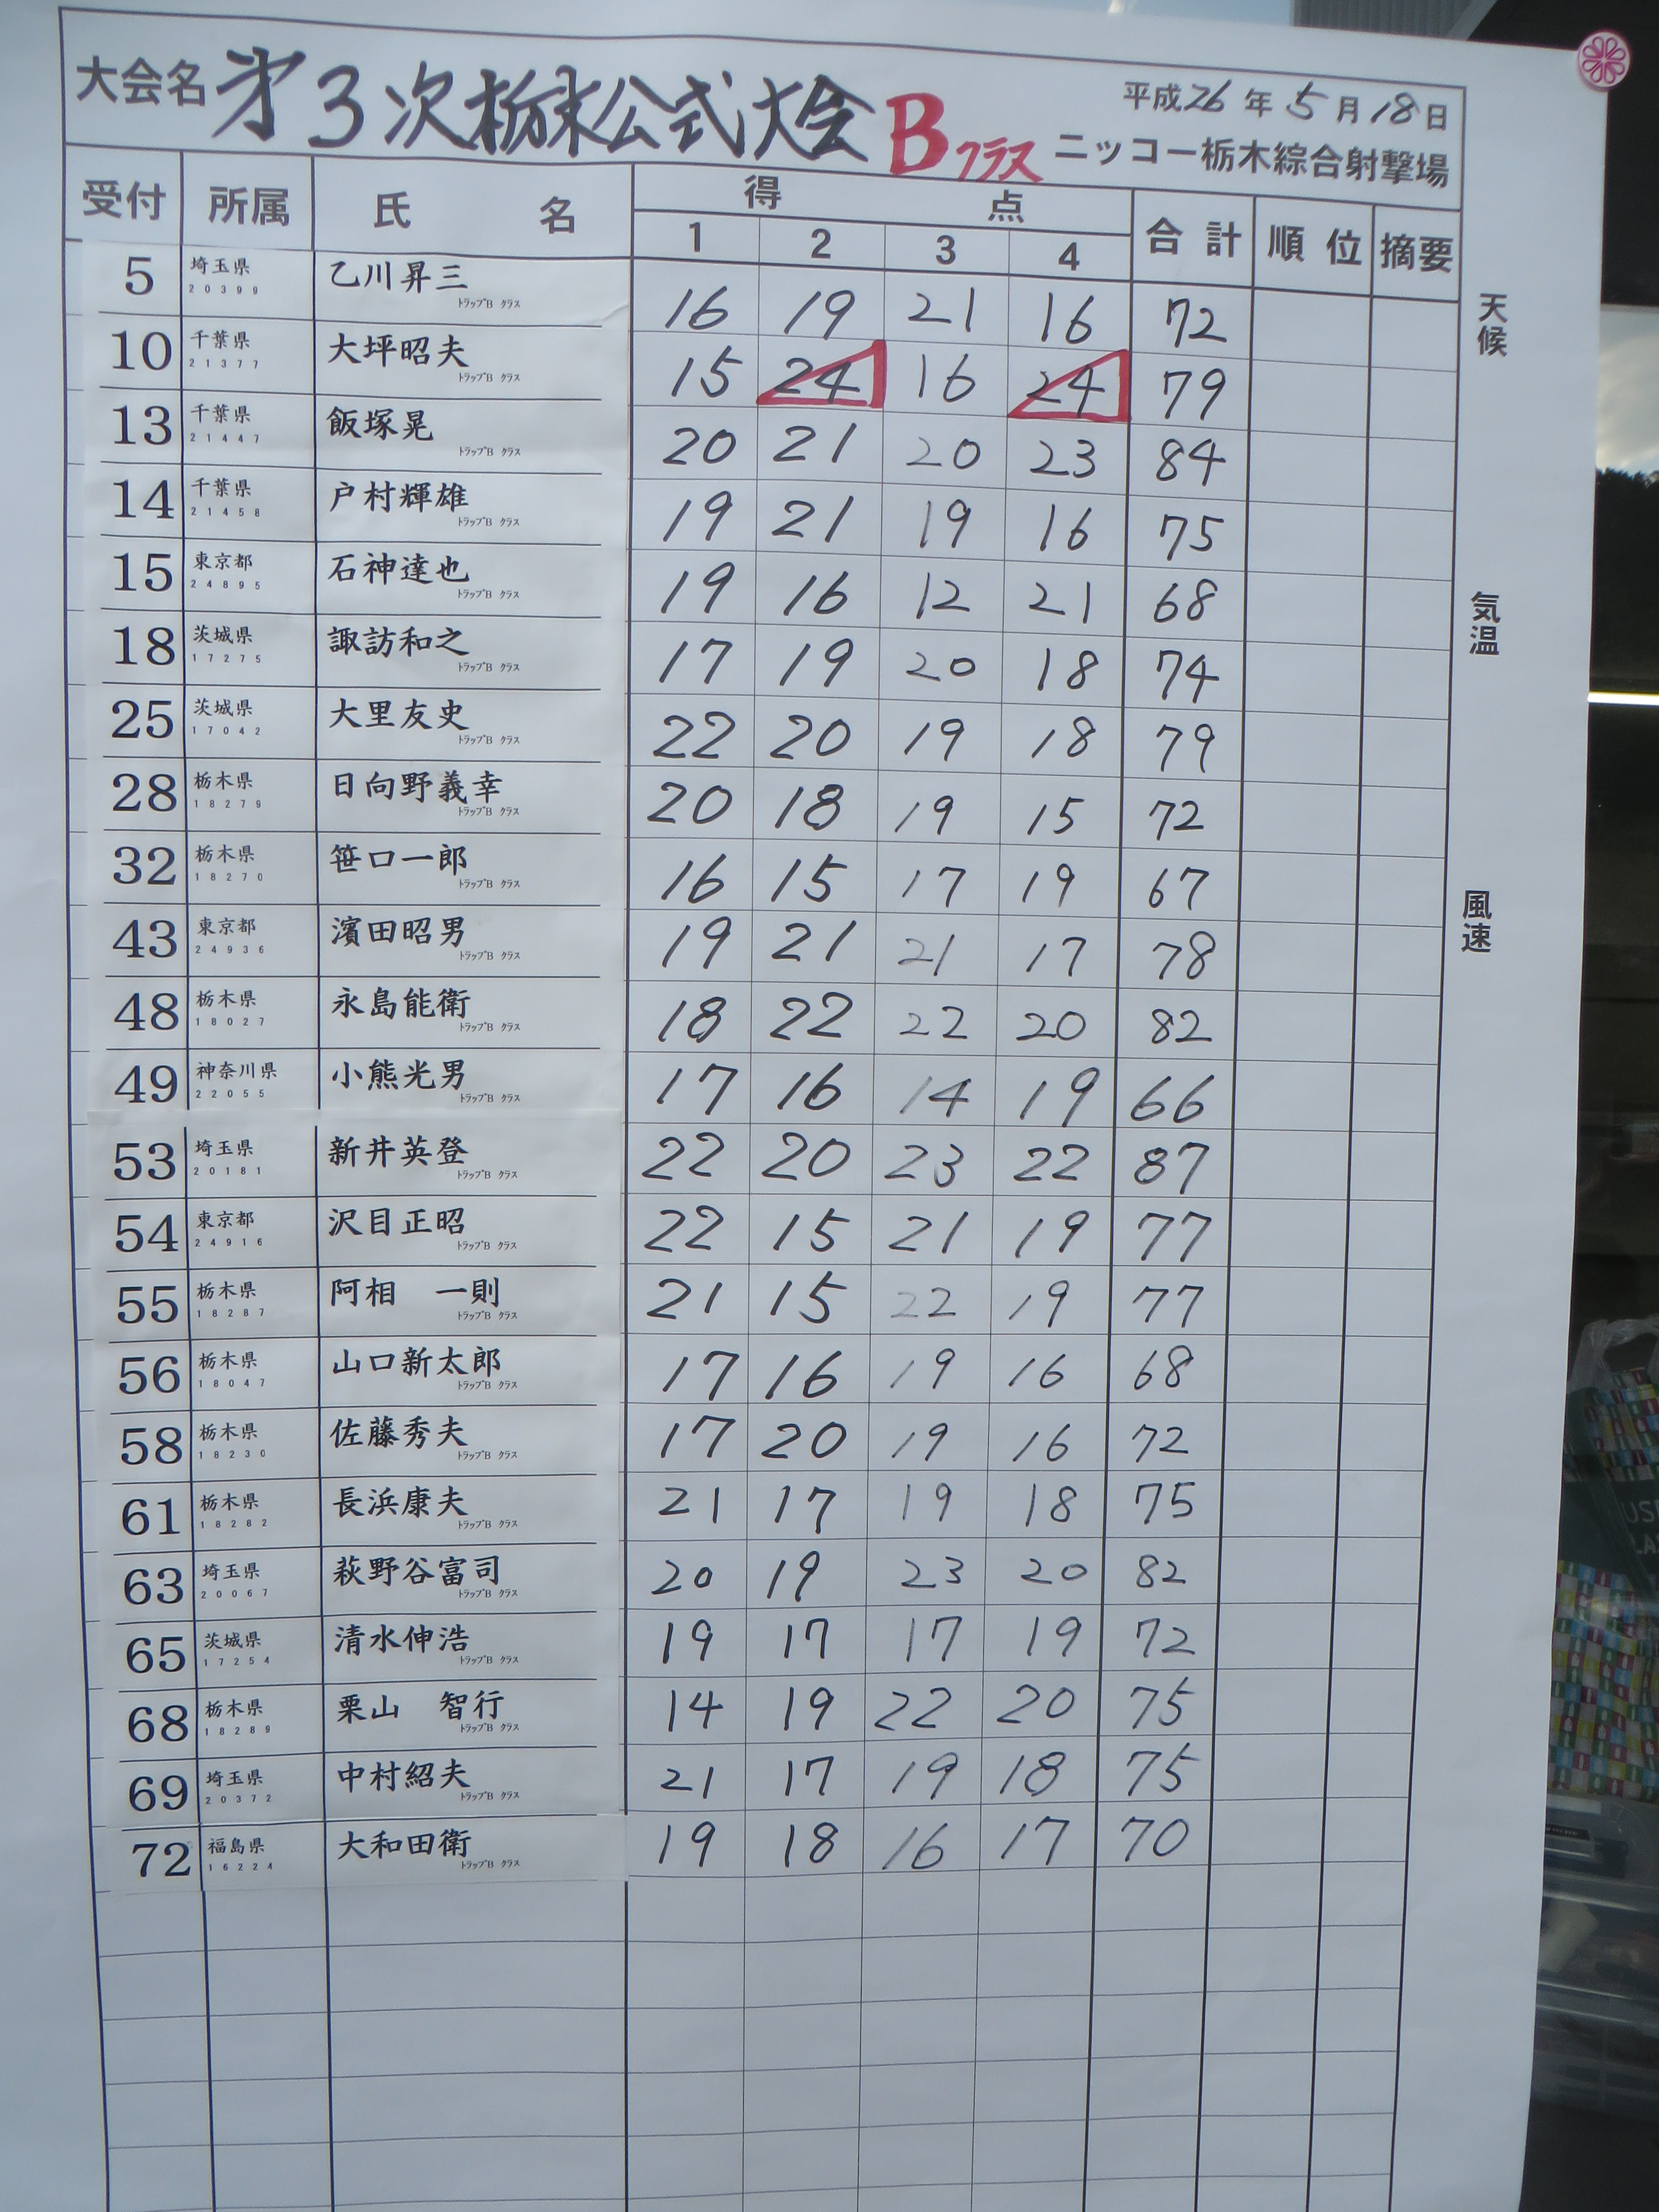 大会名 第3次栃木公式大会 Bクラス 平成26年5月18日
ニッコー栃木綜合射撃場
受付 所属 氏名 得点 合計 順位 摘要
1 2 3 4
5 埼玉県 20399 乙川昇三 トラップB クラス 16 19 21 16 72
10 千葉県 21377 大坪昭夫 トラップB クラス 15 24 16 24 79
13 千葉県 21447 飯塚晃 トラップB クラス 20 21 20 23 84
14 千葉県 21458 戸村輝雄 トラップB クラス 19 21 19 16 75
15 東京都 24895 石神達也 トラップB クラス 19 16 12 21 68
18 茨城県 17275 諏訪和之 トラップB クラス 17 19 20 18 74
25 茨城県 17042 大里友史 トラップB クラス 22 20 19 18 79
28 栃木県 18279 日向野義幸 トラップB クラス 20 18 19 15 72
32 栃木県 18270 笹口一郎 トラップB クラス 16 15 17 19 67
43 東京都 24936 濱田昭男 トラップB クラス 19 21 21 17 78
48 栃木県 18027 永島能衛 トラップB クラス 18 22 22 20 82
49 神奈川県 22055 小熊光男 トラップB クラス 17 16 14 19 66
53 埼玉県 20181 新井英登 トラップB クラス 22 20 23 22 87
54 東京都 24916 沢目正昭 トラップB クラス 22 15 21 19 77
55 栃木県 18287 阿相 一則 トラップB クラス 21 15 22 19 77
56 栃木県 18047 山口新太郎 トラップB クラス 17 16 19 16 68
58 栃木県 18230 佐藤秀夫 トラップB クラス 17 20 19 16 72
61 栃木県 18282 長浜康夫 トラップB クラス 21 17 19 18 75
63 埼玉県 20067 萩野谷富司 トラップB クラス 20 19 23 20 82
65 茨城県 17254 清水伸浩 トラップB クラス 19 17 17 19 72
68 栃木県 18289 栗山 智行 トラップB クラス 14 19 22 20 75
69 埼玉県 20372 中村紹夫 トラップB クラス 21 17 19 18 75
72 福島県 16224 大和田衛 トラップB クラス 19 18 16 17 70
天候
気温
風速